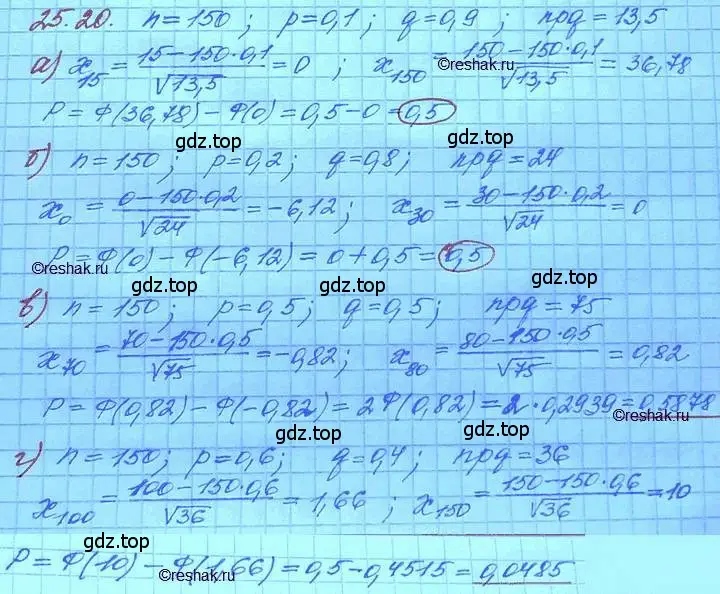 25.20. n=150; p=0,1; q=0,9; npq=13,5
а) x₁₅ = (15−150·0,1)/√13,5 = 0; x₁₅₀ = (150−150·0,1)/√13,5 = 36,78
P = Ф(36,78) − Ф(0) = 0,5 − 0 = 0,5
©reshak.ru
gdz.top gdz.top
б) n=150; p=0,2; q=0,8; npq=24
x₀ = (0−150·0,2)/√24 = −6,12; x₃₀ = (30−150·0,2)/√24 = 0
P = Ф(0) − Ф(−6,12) = 0 + 0,5 = 0,5
©reshak.ru gdz.top
gdz.top
в) n=150; p=0,5; q=0,5; npq=75
x₇₀ = (70−150·0,5)/√75 = −0,82; x₈₀ = (80−150·0,5)/√75 = 0,82
©reshak.ru
gdz.top
P = Ф(0,82) − Ф(−0,82) = 2Ф(0,82) = 2·0,2939 = 0,5878
©reshak.ru
gdz.top
г) n=150; p=0,6; q=0,4; npq=36
x₁₀₀ = (100−150·0,6)/√36 = 1,66; x₁₅₀ = (150−150·0,6)/√36 = 10
gdz.top gdz.top
P = Ф(10) − Ф(1,66) = 0,5 − 0,4515 = 0,0485
©reshak.ru